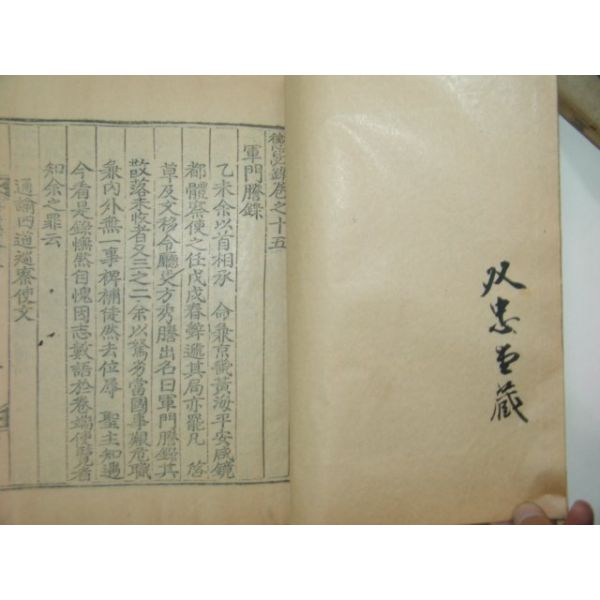 双忠堂藏
懲毖錄卷之十五
軍門謄錄
乙未余以首相承 命兼京畿黃海平安咸鏡
都體察使之任戊戌春辭遞其局亦罷凡 啓
草及文移令廳吏方秀謄出名曰軍門謄錄其
散落未收者又三之二余以駑劣當國事艱危職
兼內外無一事裨補徒然去位辱 聖主知遇
今看是錄憮然自愧因志數語於卷端使覽者
知余之罪云
通諭四道巡察使文